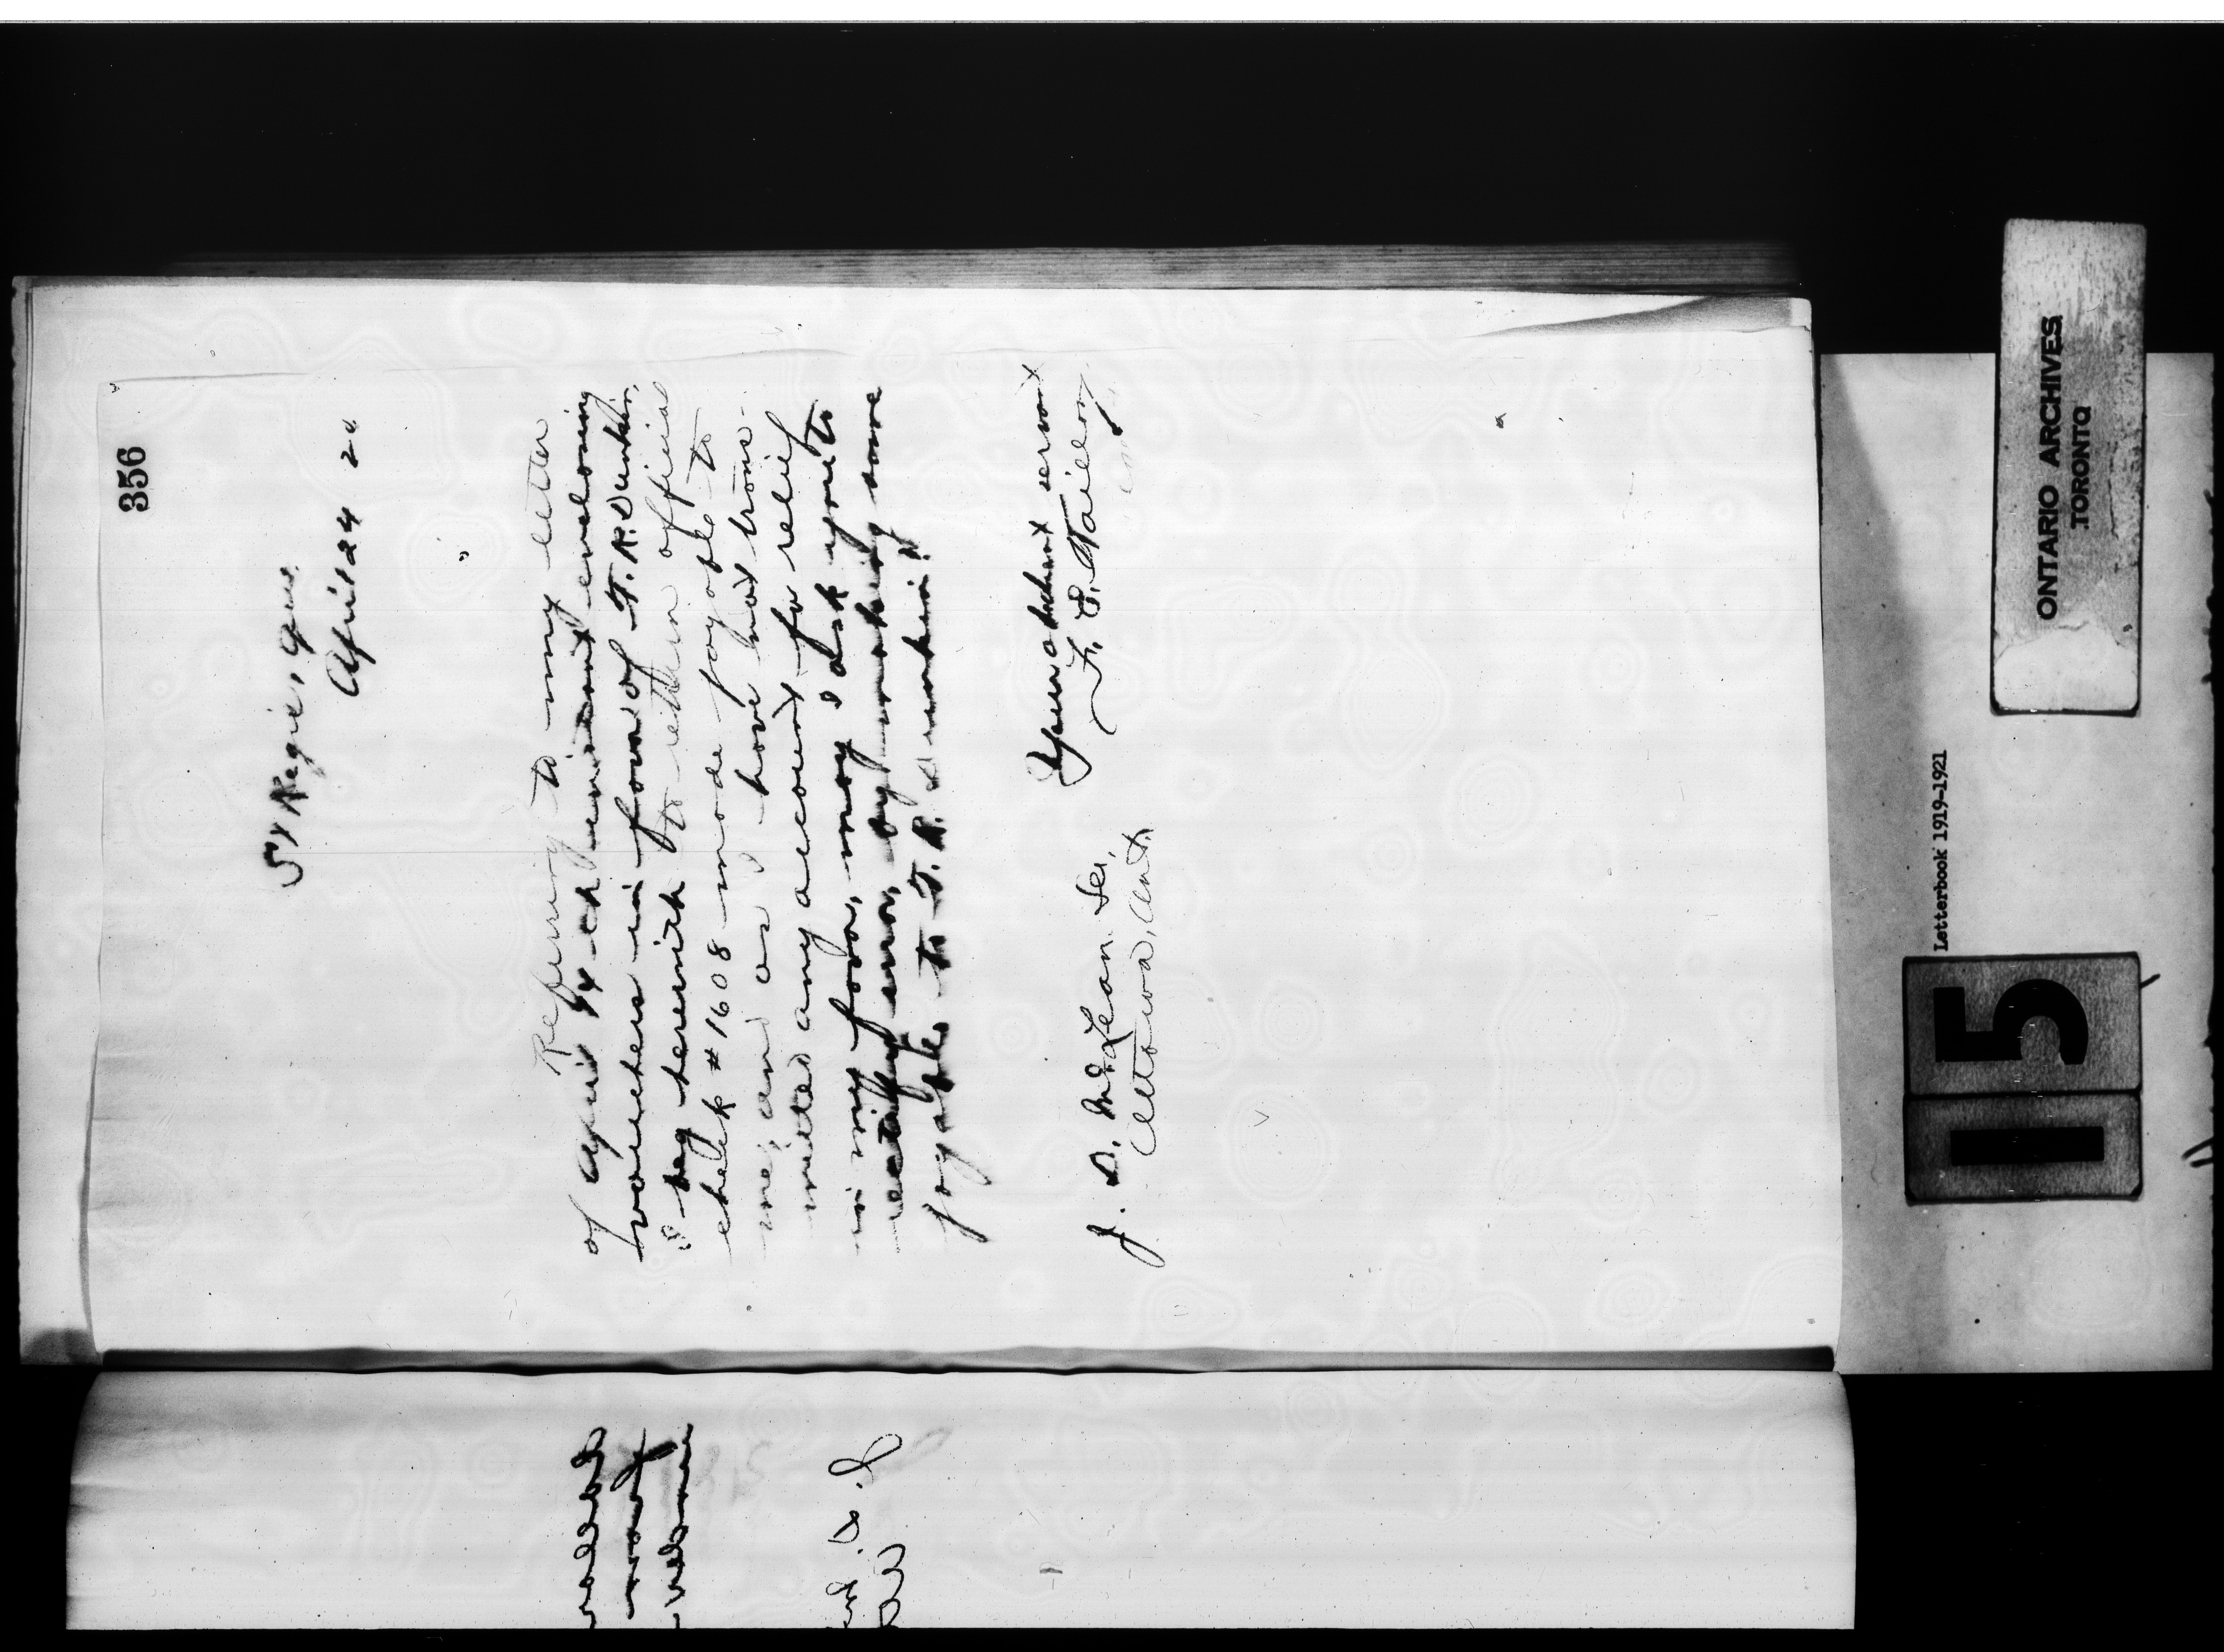 356
St Regis, Que.
April 24 20
Referring to my letter
of April 14th instant enclosing
vouchers in favor of T. R. Dunkin,
I beg herewith to return official
chek #1608 made payable to
me, and as I have not trans-
mitted any account for relief
in my favor, may I ask you to
rectify error, by making same
payable to T. R. Dunkin.
Your obedient servant
F. E. Taillon
J. D. McLean Sec,
Ottawa, Ont.
J. D.
ONTARIO ARCHIVES
TORONTO
Letterbook 1919-1921
15